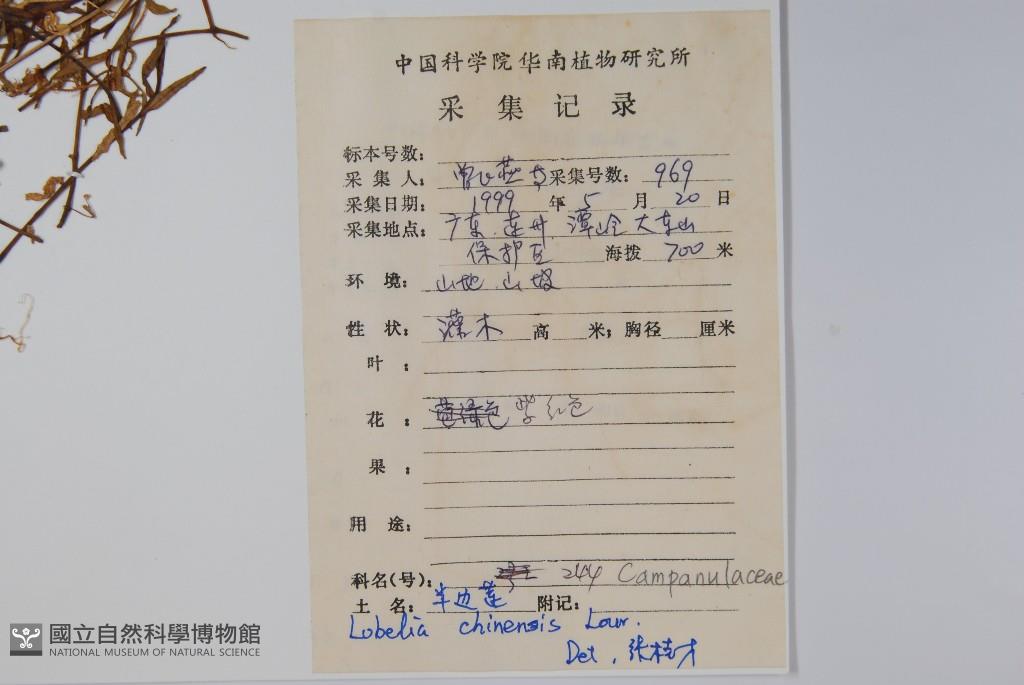 中国科学院华南植物研究所
采集记录
标本号数:
采集人: 采集号数: 969
采集日期: 1999 年 5 月 20 日
采集地点: 广东 连州 潭岭 大东山
保护区 海拨 700 米
环境: 山地 山坡
性状: 灌木 高 米; 胸径 厘米
叶:
花: 黄绿色 紫红色
果:
用途:
科名(号): 244 Campanulaceae
土名: 半边莲 附记:
Lobelia chinensis Lour.
Det. 张桂才
國立自然科學博物館
NATIONAL MUSEUM OF NATURAL SCIENCE